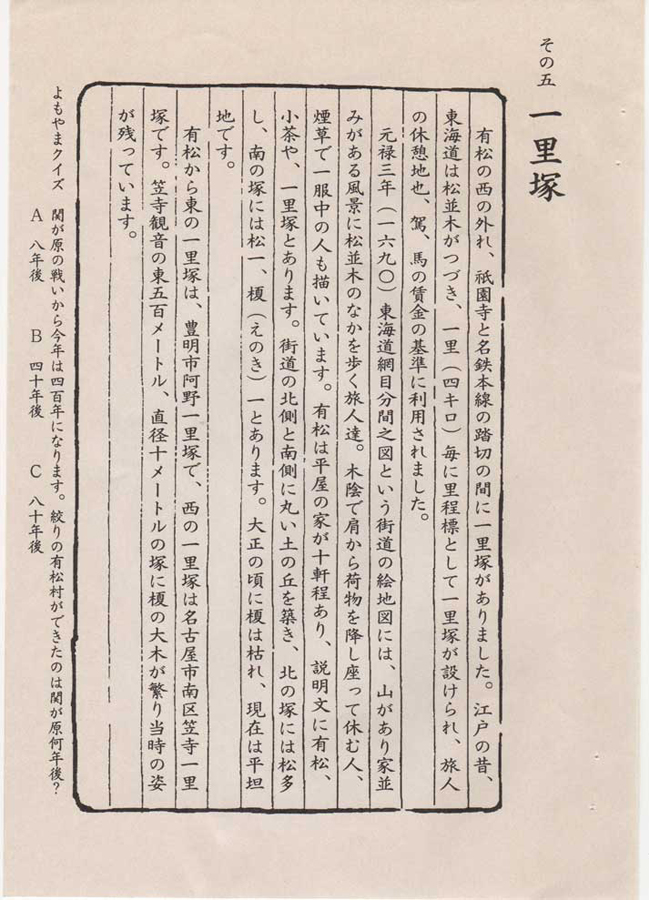 その五 一里塚
有松の西の外れ、祇園寺と名鉄本線の踏切の間に一里塚がありました。江戸の昔、
東海道は松並木がつづき、一里（四キロ）毎に里程標として一里塚が設けられ、旅人
の休憩地也、駕、馬の賃金の基準に利用されました。
元禄三年（一六九〇）東海道網目分間之図という街道の絵地図には、山があり家並
みがある風景に松並木のなかを歩く旅人達。木陰で肩から荷物を降し座って休む人、
煙草で一服中の人も描いています。有松は平屋の家が十軒程あり、説明文に有松、
小茶や、一里塚とあります。街道の北側と南側に丸い土の丘を築き、北の塚には松多
し、南の塚には松一、榎（えのき）一とあります。大正の頃に榎は枯れ、現在は平坦
地です。
有松から東の一里塚は、豊明市阿野一里塚で、西の一里塚は名古屋市南区笠寺一里
塚です。笠寺観音の東五百メートル、直径十メートルの塚に榎の大木が繁り当時の姿
が残っています。
よもやまクイズ 関が原の戦いから今年は四百年になります。絞りの有松村ができたのは関が原何年後？
A 八年後 B 四十年後 C 八十年後